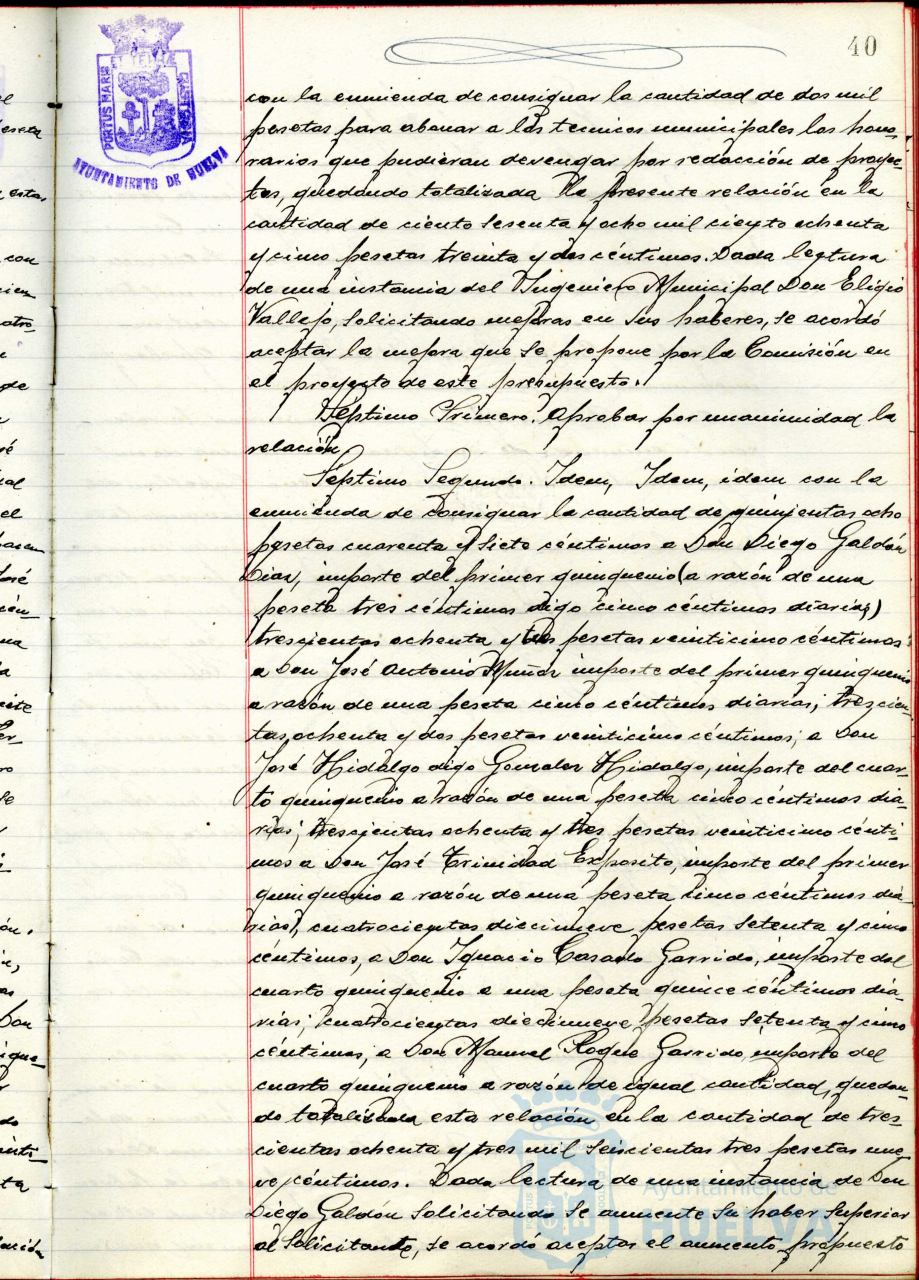 40
PORTUS MARIS ET TERRÆ CUSTODIA
AYUNTAMIENTO DE HUELVA
con la enmienda de consignar la cantidad de dos mil
pesetas para abonar a los tecnicos municipales los hono-
rarios que pudieran devengar por redacción de proyec-
tos, quedando totalizada la presente relación en la
cantidad de ciento sesenta y ocho mil ciento ochenta
y cinco pesetas treinta y dos céntimos. Dada lectura
de una instancia del Ingeniero Municipal Don Eligio
Vallejo, solicitando mejoras en sus haberes, se acordó
aceptar la mejora que se propone por la Comisión en
el proyecto de este presupuesto.
Septimo Primero. Aprobar por unanimidad la
relación
Séptimo Segundo. Idem, Idem, idem con la
enmienda de consignar la cantidad de quinientas ocho
pesetas cuarenta y siete céntimos a Don Diego Galdón
Dias, importe del primer quinquenio (a razón de una
peseta tres céntimos digo cinco céntimos diarias)
trescientas ochenta y tres pesetas veinticinco céntimos
a Don José Antonio Muñoz importe del primer quinquenio
a razón de una peseta cinco céntimos diarias; trescien-
tas ochenta y dos pesetas veinticinco céntimos; a Don
José Hidalgo digo Gonzalez Hidalgo, importe del cuar-
to quinquenio a razón de una peseta cinco céntimos dia-
rias; trescientas ochenta y tres pesetas veinticinco cénti-
mos a Don José Trinidad Exposito, importe del primer
quinquenio a razón de una peseta cinco céntimos dia-
rias, cuatrocientas diecinueve pesetas setenta y cinco
céntimos, a Don Ignacio Casado Garrido, importe del
cuarto quinquenio a una peseta quince céntimos dia-
rias; cuatrocientas diecinueve pesetas setenta y cinco
céntimos, a Don Manuel Roque Garrido, importe del
cuarto quinquenio a razón de igual cantidad, quedan-
do totalizada esta relación en la cantidad de tres-
cientas ochenta y tres mil seiscientas tres pesetas nue-
ve céntimos. Dada lectura de una instancia de Don
Diego Galdón solicitando se aumente su haber superior
al solicitante, se acordó aceptar el aumento propuesto
Ayuntamiento de
HUELVA